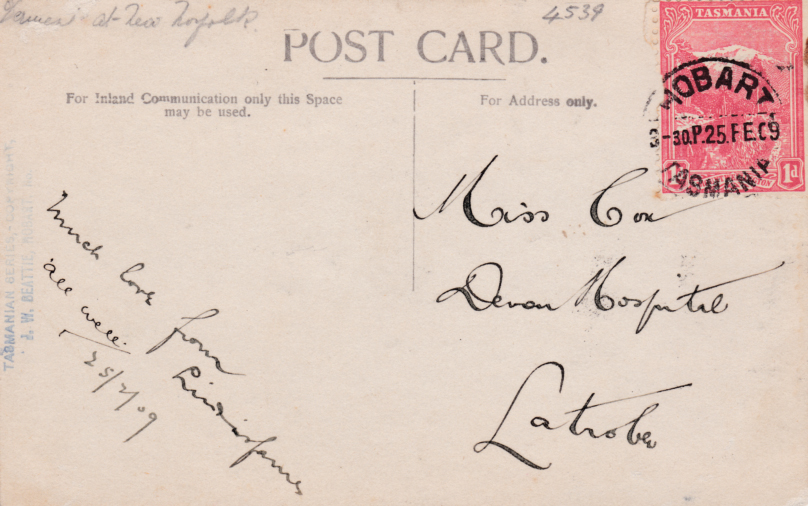 at New Norfolk
4539
POST CARD.
For Inland Communication only this Space
may be used.
For Address only.
TASMANIA
HOBART
-30.P.25.FE.09
TASMANIA
1d
Miss Cox
Devon Hospital
Latrobe
much love from
Lindisfarne
all well.
25/2/09
TASMANIAN
J. W. BEATTIE,